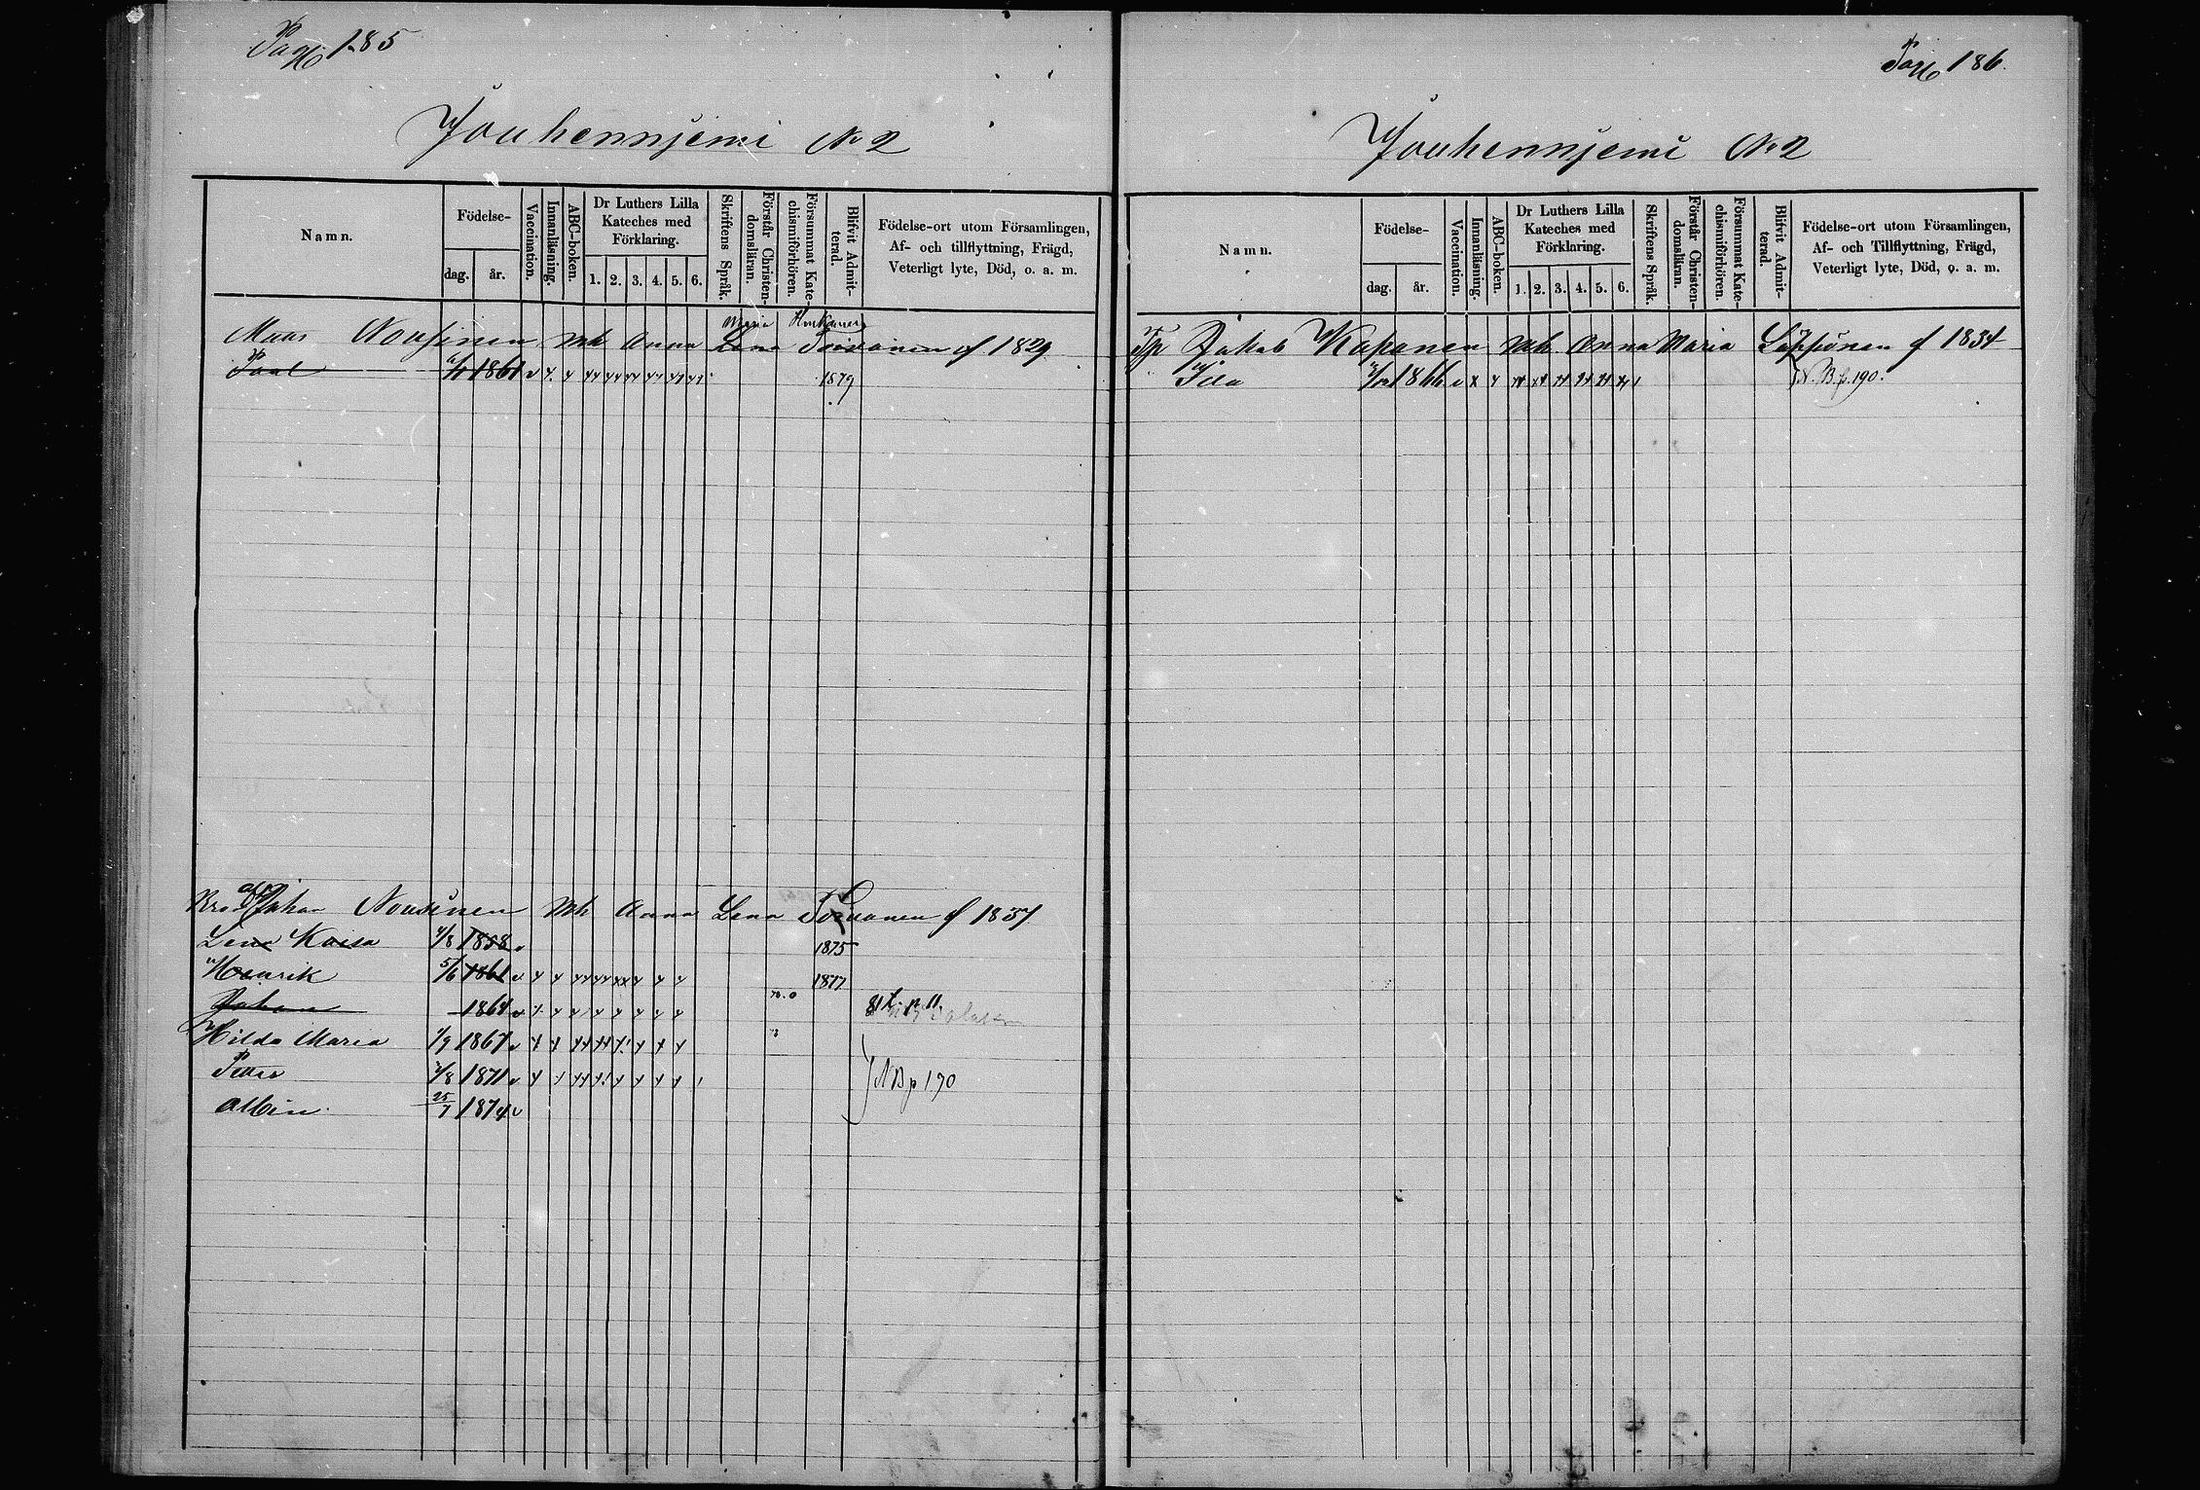 Pag 185
Jouhennjemi No 2
Namn.
Födelse-
dag.
år.
Vaccination.
Innanläsning.
ABC-boken.
Dr Luthers Lilla
Kateches med
Förklaring.
1. 2. 3. 4. 5. 6.
Skriftens Språk.
Förstår Christen-
domsläran.
Försummat Kate-
chismiförhören.
Blifvit Admit-
terad.
Födelse-ort utom Församlingen,
Af- och tillflyttning, Frägd,
Veterligt lyte, Död, o. a. m.
Maria
Mats Nousinen mh Anna Lena f 1829
Paul 1861 v 1879
Johan Nousinen Mh Anna Lena
Lena Kaisa 1858 v 1875
Henrik 5/6 1861 v 1877
Johan 1864 v n.o
Hilda Maria 1/9 1867 v
Petter 1871 v NB p 190
Albin 25/7 1874 v
Pag 186.
Jouhennjemi No 2
Namn.
Födelse-
dag.
år.
Vaccination.
Innanläsning.
ABC-boken.
Dr Luthers Lilla
Kateches med
Förklaring.
1. 2. 3. 4. 5. 6.
Skriftens Språk.
Förstår Christen-
domsläran.
Försummat Kate-
chismiförhören.
Blifvit Admit-
terad.
Födelse-ort utom Församlingen,
Af- och Tillflyttning, Frägd,
Veterligt lyte, Död, o. a. m.
Jakob Kaponen mh Anna Maria Läppönen f 1834
1866 v N.B. p. 190.